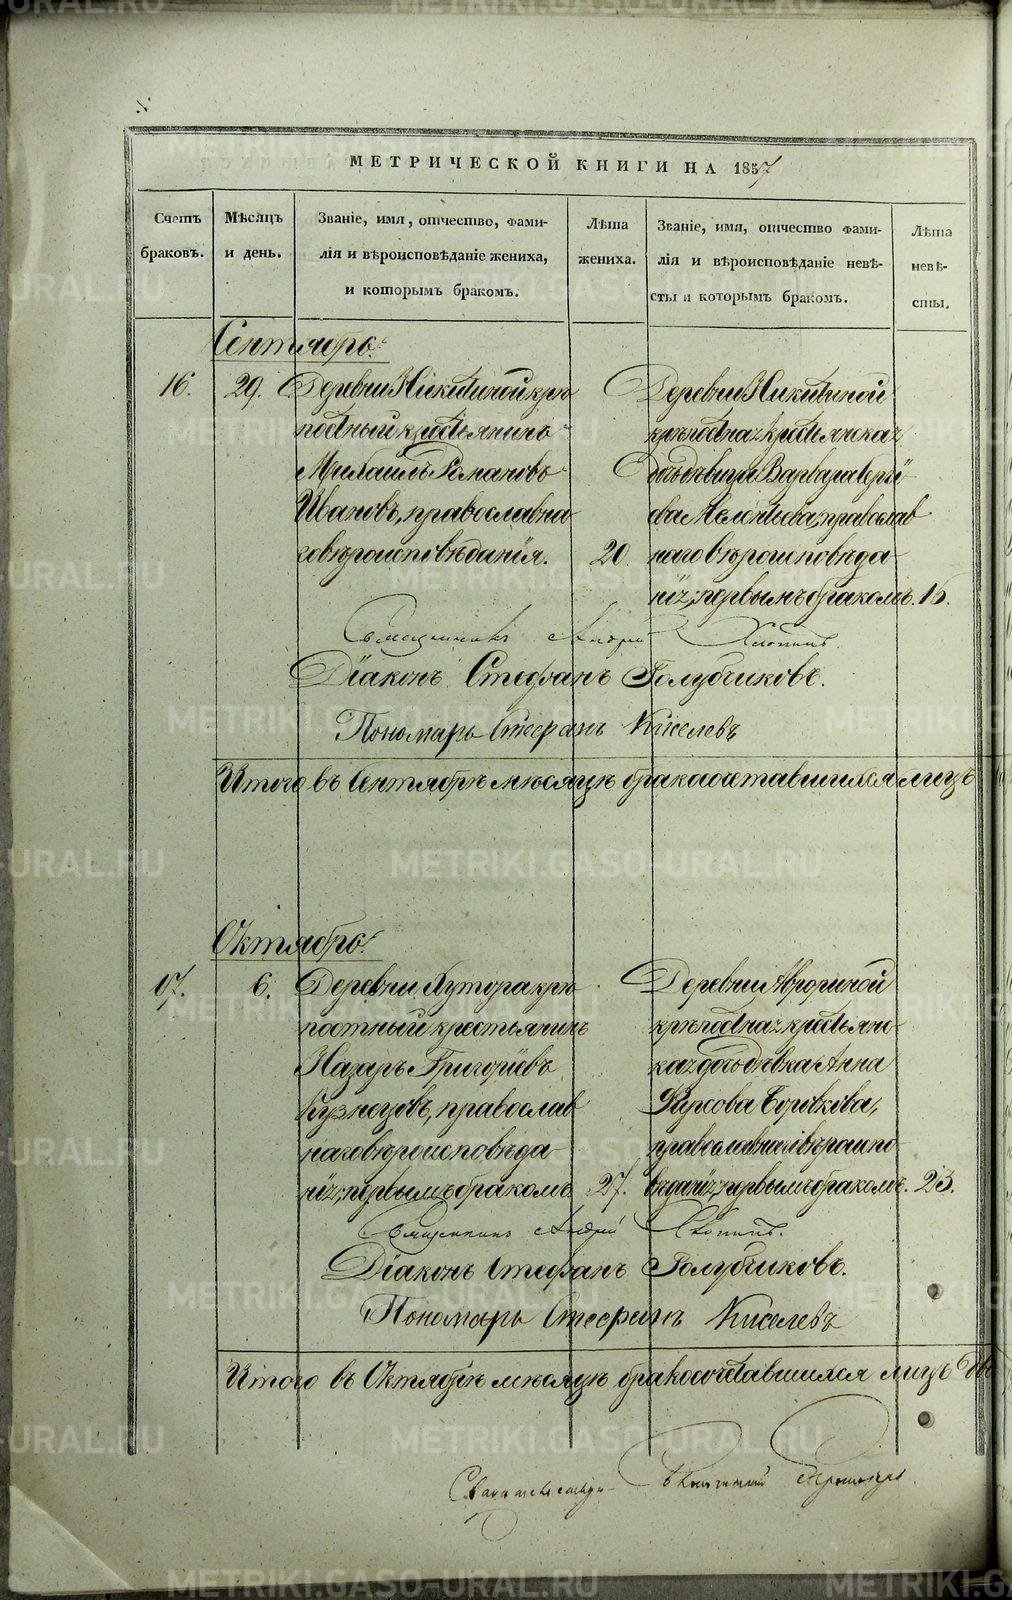 МЕТРИЧЕСКОЙ КНИГИ НА 1857
Счетъ браковъ.
Мѣсяцъ и день.
Званіе, имя, отчество, фамилія и вѣроисповѣданіе жениха, и которымъ бракомъ.
Лѣта жениха.
Званіе, имя, отчество фамилія и вѣроисповѣданіе невѣсты и которымъ бракомъ.
Лѣта невѣсты.
Сентябрь.
16.
29.
Деревни Никитиной крѣ
постный крестьянинъ
Михаилъ Романовъ
Ивановъ, православна
го вѣроисповѣданія.
20.
Деревни Никитиной
крѣпостная крестьянская
дочь дѣвица Варвара
Мелентьева, православ
наго вѣроисповѣда
нія, первымъ бракомъ.
Священникъ Андрей
Діаконъ Стефанъ Голубчиковъ.
Пономарь Стефанъ Киселевъ
Итого въ Сентябрѣ мѣсяцѣ бракосочетавшихся лицъ
Октябрь.
17.
6.
Деревни Хутора крѣ
постный крестьянинъ
Назаръ Григорьевъ
Кузнецовъ, православ
наго вѣроисповѣда
нія, первымъ бракомъ.
27.
Деревни
крѣпостная крестьянс
кая дочь дѣвка Анна
Фирсова Боровкова,
православнаго вѣроиспо
вѣданія, первымъ бракомъ.
23.
Священникъ Андрей
Діаконъ Стефанъ Голубчиковъ.
Пономарь Стефанъ Киселевъ
Итого въ Октябрѣ мѣсяцѣ бракосочетавшихся лицъ
METRIKI.GASO-URAL.RU